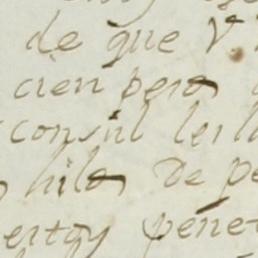 de que V
cien peros
consul le
hilos de pe
estoy penet